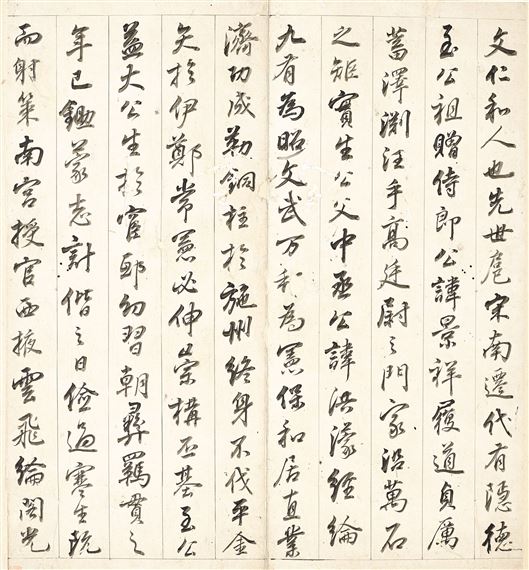 文仁和人也先世扈宋南遷代有隱德
至公祖贈侍郎公諱景祥履道貞厲
蓄澤淵汪乎高廷尉之門家沿萬石
之矩實生公父中丞公諱洪濛經綸
九有為昭文武万和為憲保和居直業
濟功成勒銅柱於施州終身不伐平金
矢於伊鄭常憲必伸崇構丕基至公
益大公生於宦邸幼習朝彝羈貫之
年已鋤蒙志計偕之日儉過寒生既
而射策南宮授官西掖雲飛綸閣光